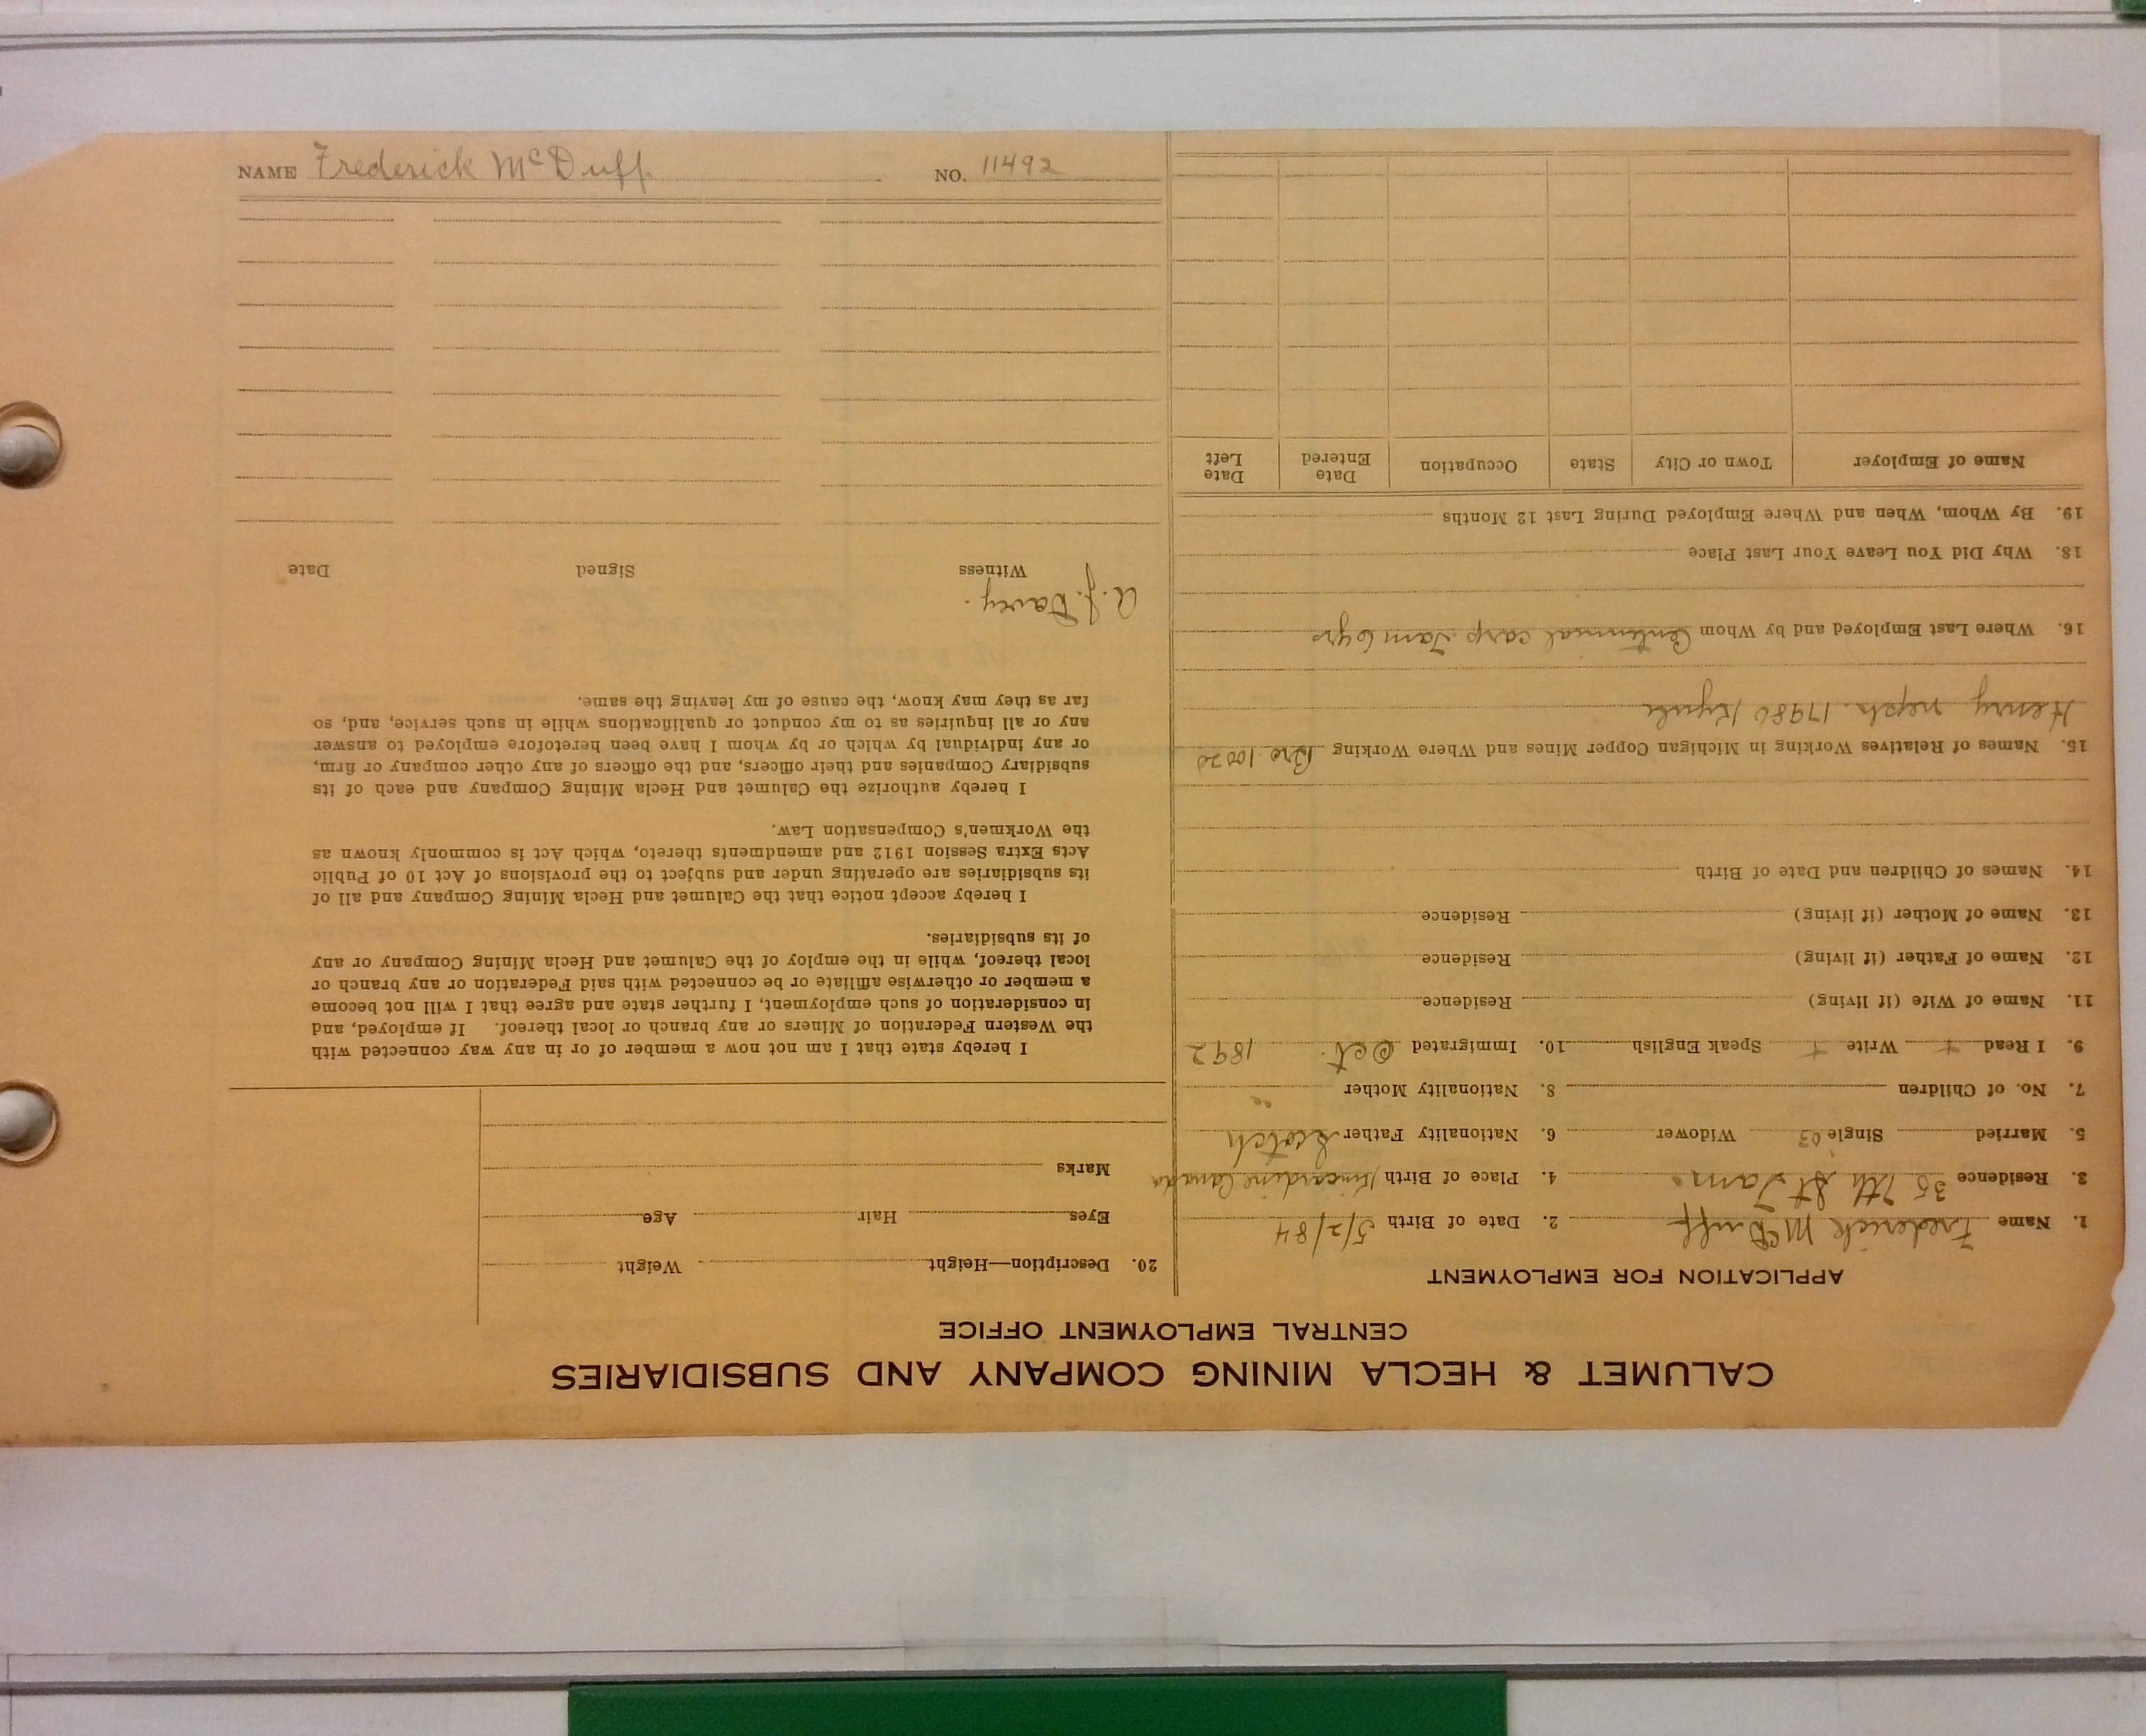 CALUMET & HECLA MINING COMPANY AND SUBSIDIARIES
CENTRAL EMPLOYMENT OFFICE
APPLICATION FOR EMPLOYMENT
1. Name Frederick McDuff 2. Date of Birth 5/2/84
3. Residence 35 7th St Tam. 4. Place of Birth Kincardine Canada
5. Married Single 03 Widower 6. Nationality Father Scotch
7. No. of Children 8. Nationality Mother "
9. I Read + Write + Speak English 10. Immigrated Oct. 1892
11. Name of Wife (if living) Residence
12. Name of Father (if living) Residence
13. Name of Mother (if living) Residence
14. Names of Children and Date of Birth
15. Names of Relatives Working in Michigan Copper Mines and Where Working Bro. 10020
Henry neph. 17980
16. Where Last Employed and by Whom Centennial carp Tam 6 yrs
18. Why Did You Leave Your Last Place
19. By Whom, When and Where Employed During Last 12 Months
Name of Employer Town or City State Occupation Date Entered Date Left
20. Description—Height Weight
Eyes Hair Age
Marks
I hereby state that I am not now a member of or in any way connected with
the Western Federation of Miners or any branch or local thereof. If employed, and
in consideration of such employment, I further state and agree that I will not become
a member or otherwise affiliate or be connected with said Federation or any branch or
local thereof, while in the employ of the Calumet and Hecla Mining Company or any
of its subsidiaries.
I hereby accept notice that the Calumet and Hecla Mining Company and all of
its subsidiaries are operating under and subject to the provisions of Act 10 of Public
Acts Extra Session 1912 and amendments thereto, which Act is commonly known as
the Workmen's Compensation Law.
I hereby authorize the Calumet and Hecla Mining Company and each of its
subsidiary Companies and their officers, and the officers of any other company or firm,
or any individual by which or by whom I have been heretofore employed to answer
any or all inquiries as to my conduct or qualifications while in such service, and, so
far as they may know, the cause of my leaving the same.
A. J. Davey.
Witness Signed Date
NAME Frederick McDuff NO. 11492